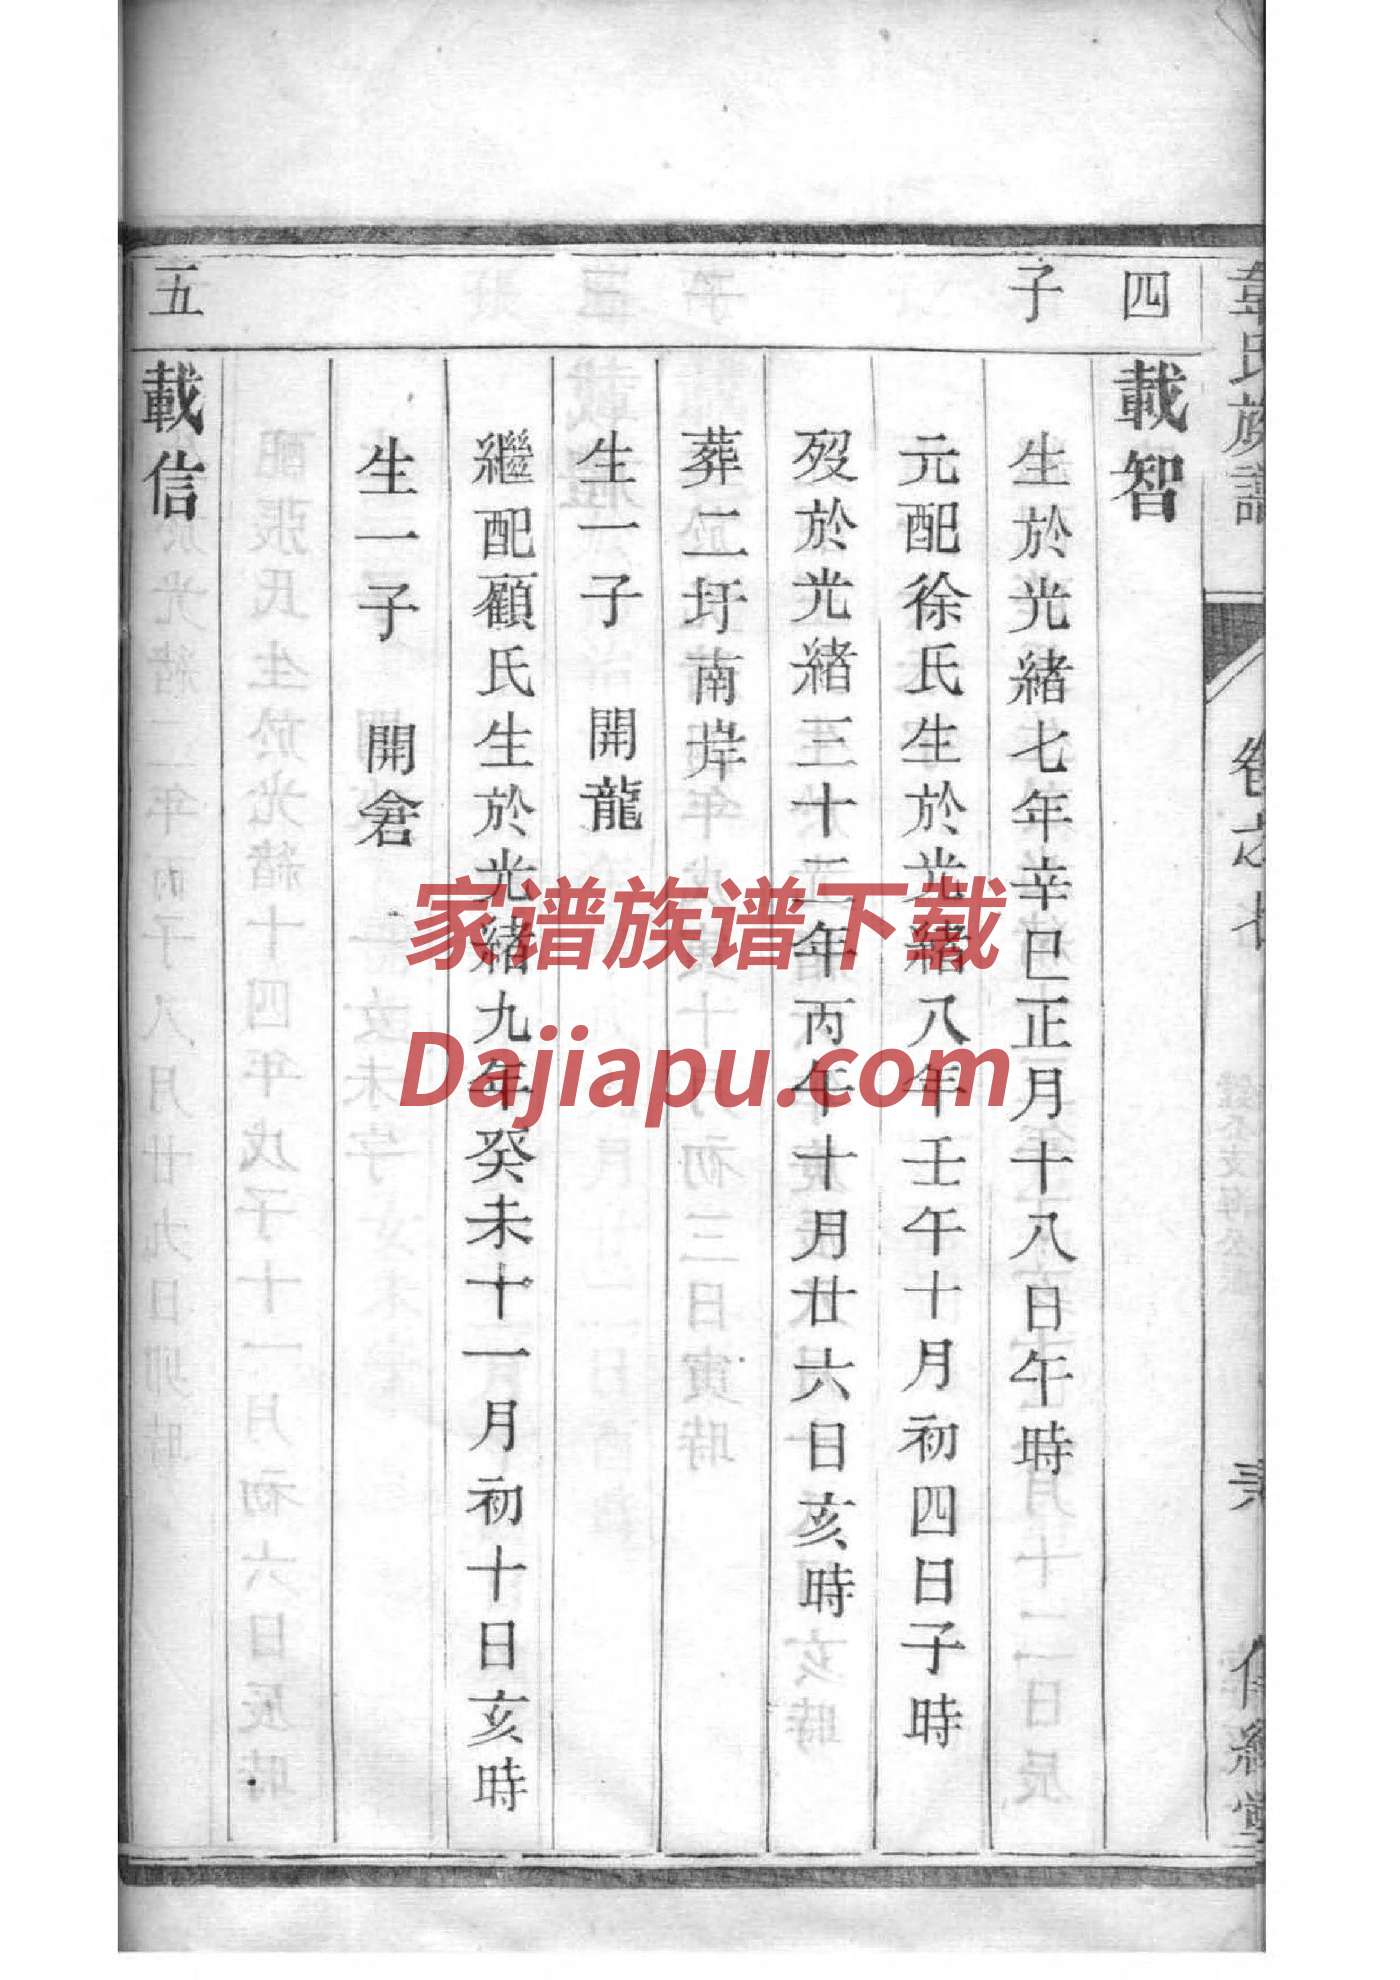 韋氏族譜
卷之七
傳經堂
四子
載智
生於光緒七年辛巳正月十八日午時
元配徐氏生於光緒八年壬午十月初四日子時
歿於光緒三十二年丙午十月廿六日亥時
葬二圩南岸
生一子　開龍
繼配顧氏生於光緒九年癸未十一月初十日亥時
生一子　開倉
五
載信
家谱族谱下载
Dajiapu.com